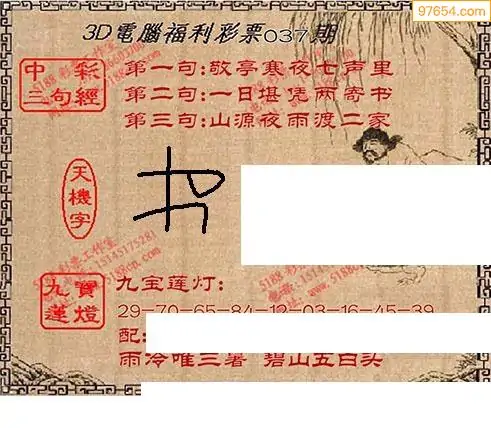 97654.com
3D電腦福利彩票037期
中彩
三句經
第一句:敬亭寒夜七声里
第二句:一日堪凭两寄书
第三句:山源夜雨渡二家
天機字
九寶
蓮燈
九宝莲灯:
29-70-65-84-12-03-16-45-39
配:
雨冷唯三署 碧山五白头